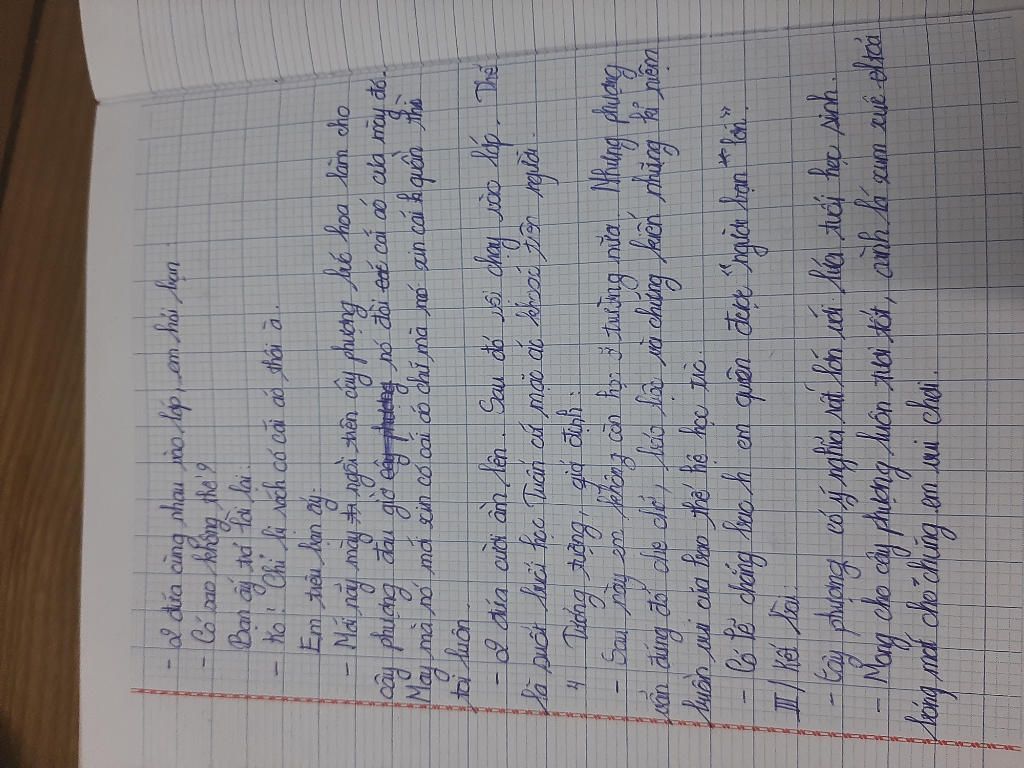 - 2 đứa cùng nhau vào lớp, em hỏi bạn.
- Có sao không thế?
Bạn ấy trả lời lại:
- Ko! Chỉ bị rách có cái áo thôi à.
Em trêu bạn ấy:
- Mới nãy mày ngồi trên cây phượng hái hoa làm cho
cây phượng đau giờ nó đòi cái áo của mày đó.
May mà nó mới xin có cái áo chứ mà nó xin cái quần thì
tới luôn.
- 2 đứa cười ầm lên. Sau đó rồi chạy vào lớp. Thế
là suốt buổi học Tuấn cứ mặc áo khoác trên người.
4 Tưởng tượng, giả định:
- Sau này em không còn học ở trường nữa. Nhưng phượng
vẫn đứng đó che chở, bảo bọc và chứng kiến những kỉ niệm
buồn vui của bao thế hệ học trò.
- Có lẽ chẳng bao h em quên được "người bạn lớn"
III/ Kết bài
- Cây phượng có ý nghĩa rất lớn với lứa tuổi học sinh.
- Mong cho cây phượng luôn tươi tốt, cành lá xum xuê tỏa
bóng mát cho chúng em vui chơi.